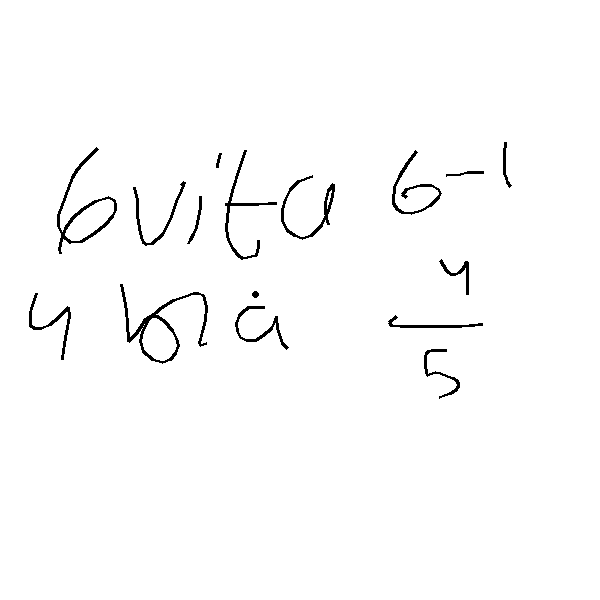 6 vita 6-1
4 blå 4/5